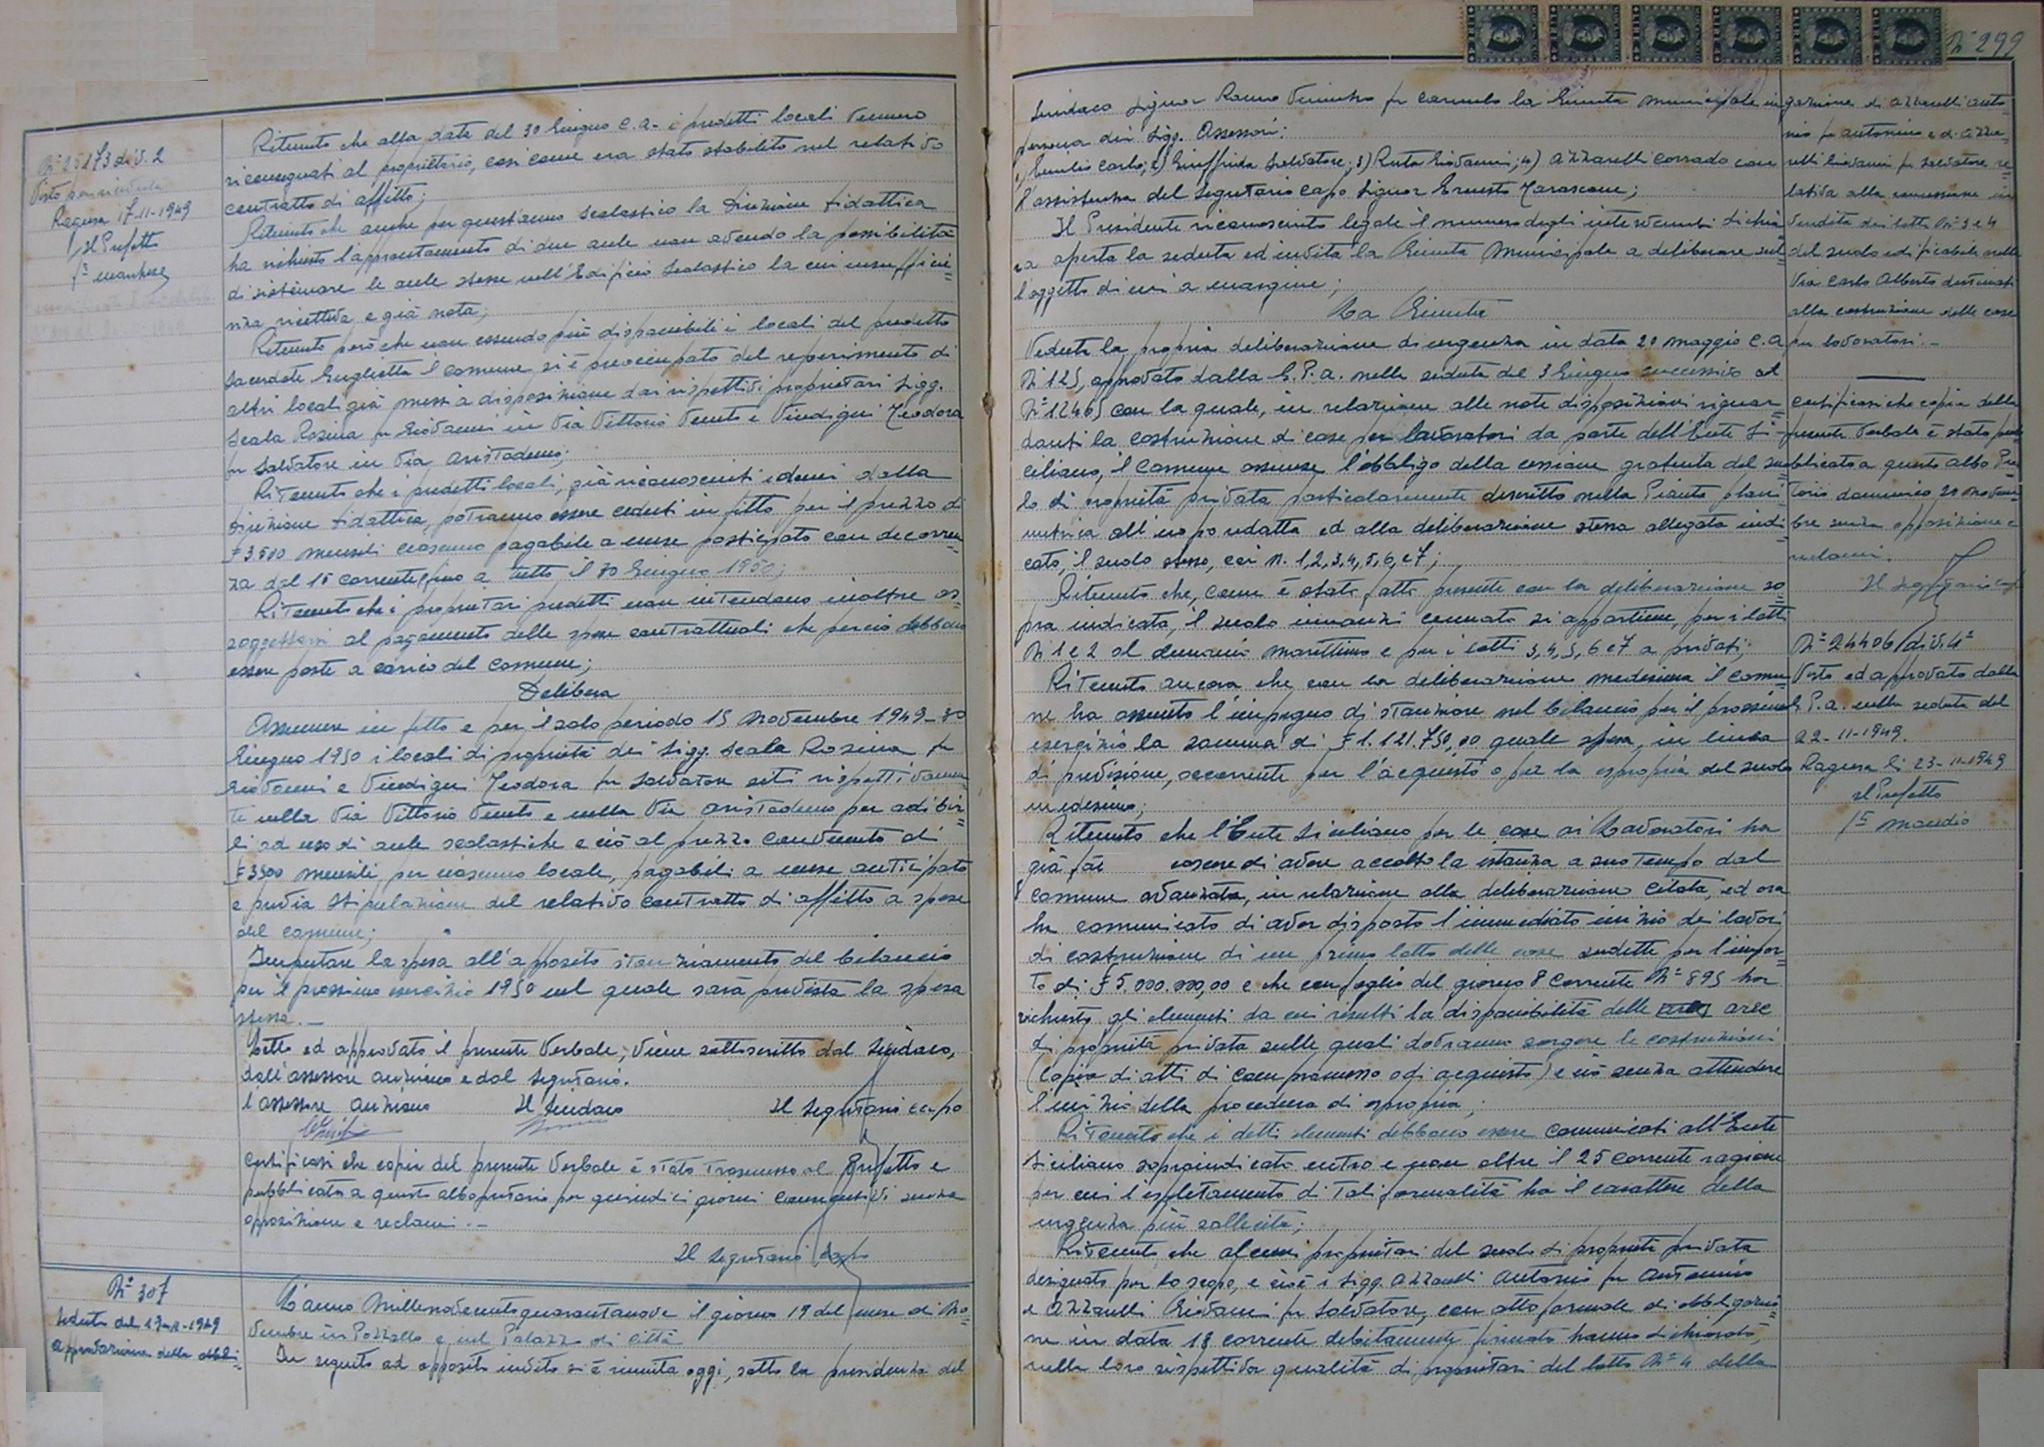 N° 25173 div. 2
Visto per ricevuta
Ragusa 17-11-1949
p. Il Prefetto
Ritenuto che alla data del 30 Giugno c.a. i predetti locali vennero
riconsegnati al proprietario, così come era stato stabilito nel relativo
contratto di affitto;
Ritenuto che anche per quest'anno scolastico la Direzione Didattica
ha richiesto l'apprestamento di due aule non avendo la possibilità
di sistemare le aule stesse nell'Edificio Scolastico la cui insuffici=
nza ricettiva è già nota;
Ritenuto però che non essendo più disponibili i locali del predetto
Sacerdote Guglietta il Comune si è preoccupato del reperimento di
altri locali già messi a disposizione dai rispettivi proprietari Sigg.
Scala Rosina fu Giovanni in Via Vittorio Veneto e Vindigni Teodora
fu Salvatore in Via Aristodemo;
Ritenuto che i predetti locali, già riconosciuti idonei dalla
Direzione Didattica, potranno essere ceduti in fitto per il prezzo di
£ 3500 mensili ciascuno pagabile a mese posticipato con decorren=
za dal 15 corrente fino a tutto il 30 Giugno 1950;
Ritenuto che i proprietari predetti non intendono inoltre as=
soggettarsi al pagamento delle spese contrattuali che perciò debbono
essere poste a carico del Comune;
Delibera
Assumere in fitto e per il solo periodo 15 Novembre 1949-30
Giugno 1950 i locali di proprietà dei Sigg. Scala Rosina fu
Giovanni e Vindigni Teodora fu Salvatore siti rispettivamen
te nella Via Vittorio Veneto e nella Via Aristodemo per adibir=
li ad uso di aule scolastiche e ciò al prezzo convenuto di
£ 3500 mensili per ciascuno locale, pagabili a mese anticipato
e previa stipulazione del relativo contratto di affitto a spese
del comune;
Imputare la spesa all'apposito stanziamento del bilancio
per il prossimo esercizio 1950 nel quale sarà prevista la spesa
stessa.—
Letto ed approvato il presente Verbale, viene sottoscritto dal Sindaco,
dall'assessore anziano e dal Segretario.
L'assessore anziano Il Sindaco Il Segretario capo
Certificasi che copia del presente Verbale è stato trasmesso al Prefetto e
pubblicata a questo albo pretorio per quindici giorni consecutivi senza
opposizione e reclami.—
Il Segretario Capo
N° 307
Seduta del 19-11-1949
Approvazione della obbli=
L'anno Millenovecentoquarantanove il giorno 19 del mese di No=
vembre in Pozzallo e nel Palazzo di città
In seguito ad apposito invito si è riunita oggi, sotto la presidenza del
N° 299
Sindaco Signor fu Carmelo la Giunta Municipale in
persona dei Sigg. Assessori:
1) Emilio Carlo; 2) Giuffrida Salvatore; 3) Ruta Giovanni; 4) Azzarelli Corrado con
l'assistenza del Segretario Capo Signor Ernesto Tarascone;
Il Presidente riconosciuto legale il numero degli intervenuti dichia
ra aperta la seduta ed invita la Giunta Municipale a deliberare sul=
l'oggetto di cui a margine;
La Giunta
Veduta la propria deliberazione di urgenza in data 20 maggio c.a.
N° 125, approvata dalla G.P.A. nella seduta del 3 Giugno successivo al
N° 12465 con la quale, in relazione alle note disposizioni riguar=
danti la costruzione di case per lavoratori da parte dell'Ente Si=
ciliano, il Comune assunse l'obbligo della cessione gratuita del suo
lo di proprietà privata particolarmente descritto nella Pianta plani
metrica all'uopo redatta ed alla deliberazione stessa allegata indi
cato, il suolo stesso, coi N. 1,2,3,4,5,6, e 7;
Ritenuto che, come è stato fatto presente con la deliberazione so=
pra indicata, il suolo innanzi cennato si appartiene, per i lotti
N° 1 e 2 al demanio marittimo e per i lotti 3,4,5,6 e 7 a privati;
Ritenuto ancora che con la deliberazione medesima il Comu
ne ha assunto l'impegno di stanziare nel bilancio per il prossimo
esercizio la somma di £ 1.121.750,00 quale spesa, in linea
di previsione, occorrente per l'acquisto o per la espropria del suolo
medesimo;
Ritenuto che l'Ente Siciliano per le case ai Lavoratori ha
già fat conoscere di avere accolto la istanza a suo tempo dal
comune avanzata, in relazione alla deliberazione citata, ed ora
ha comunicato di aver disposto l'immediato inizio dei lavori
di costruzione di un primo lotto delle case suddette per l'impor=
to di £ 5.000.000,00 e che con foglio del giorno 8 corrente N° 895 ha
richiesto gli elementi da cui risulti la disponibilità delle aree
di proprietà privata sulle quali dovranno sorgere le costruzioni
(copia di atti di compromesso o di acquisto) e ciò senza attendere
l'inizio della procedura di espropria;
Ritenuto che i detti elementi debbono essere comunicati all'Ente
Siciliano sopraindicato entro e non oltre il 25 corrente ragione
per cui l'espletamento di tali formalità ha il carattere della
urgenza più sollecita;
Ritenuto che alcuni proprietari del suolo di proprietà privata
designato per lo scopo, e cioè i Sigg. Azzarelli Antonio fu Antonino
e Azzarelli Giovanni fu Salvatore, con atto formale di obbligazio
ne in data 18 corrente debitamente firmato hanno dichiarato,
nella loro rispettiva qualità di proprietari del lotto N° 4 della
gazione di Azzarelli Anto
nio fu Antonino e di Azza
relli Giovanni fu Salvatore re=
lativa alla concessione in
vendita dei lotti N° 3 e 4
del suolo edificabile nella
Via Carlo Alberto destinati
alla costruzione delle case
per lavoratori.—
Certificasi che copia della
presente Verbale è stata pub
blicata a questo albo Pre
torio domenica 20 Novem=
bre senza opposizione e
reclami.
Il Segretario Capo
N° 24406/div. 4ª
Visto ed approvato dalla
G.P.A. nella seduta del
22-11-1949.
Ragusa li 23-11-1949
Il Prefetto